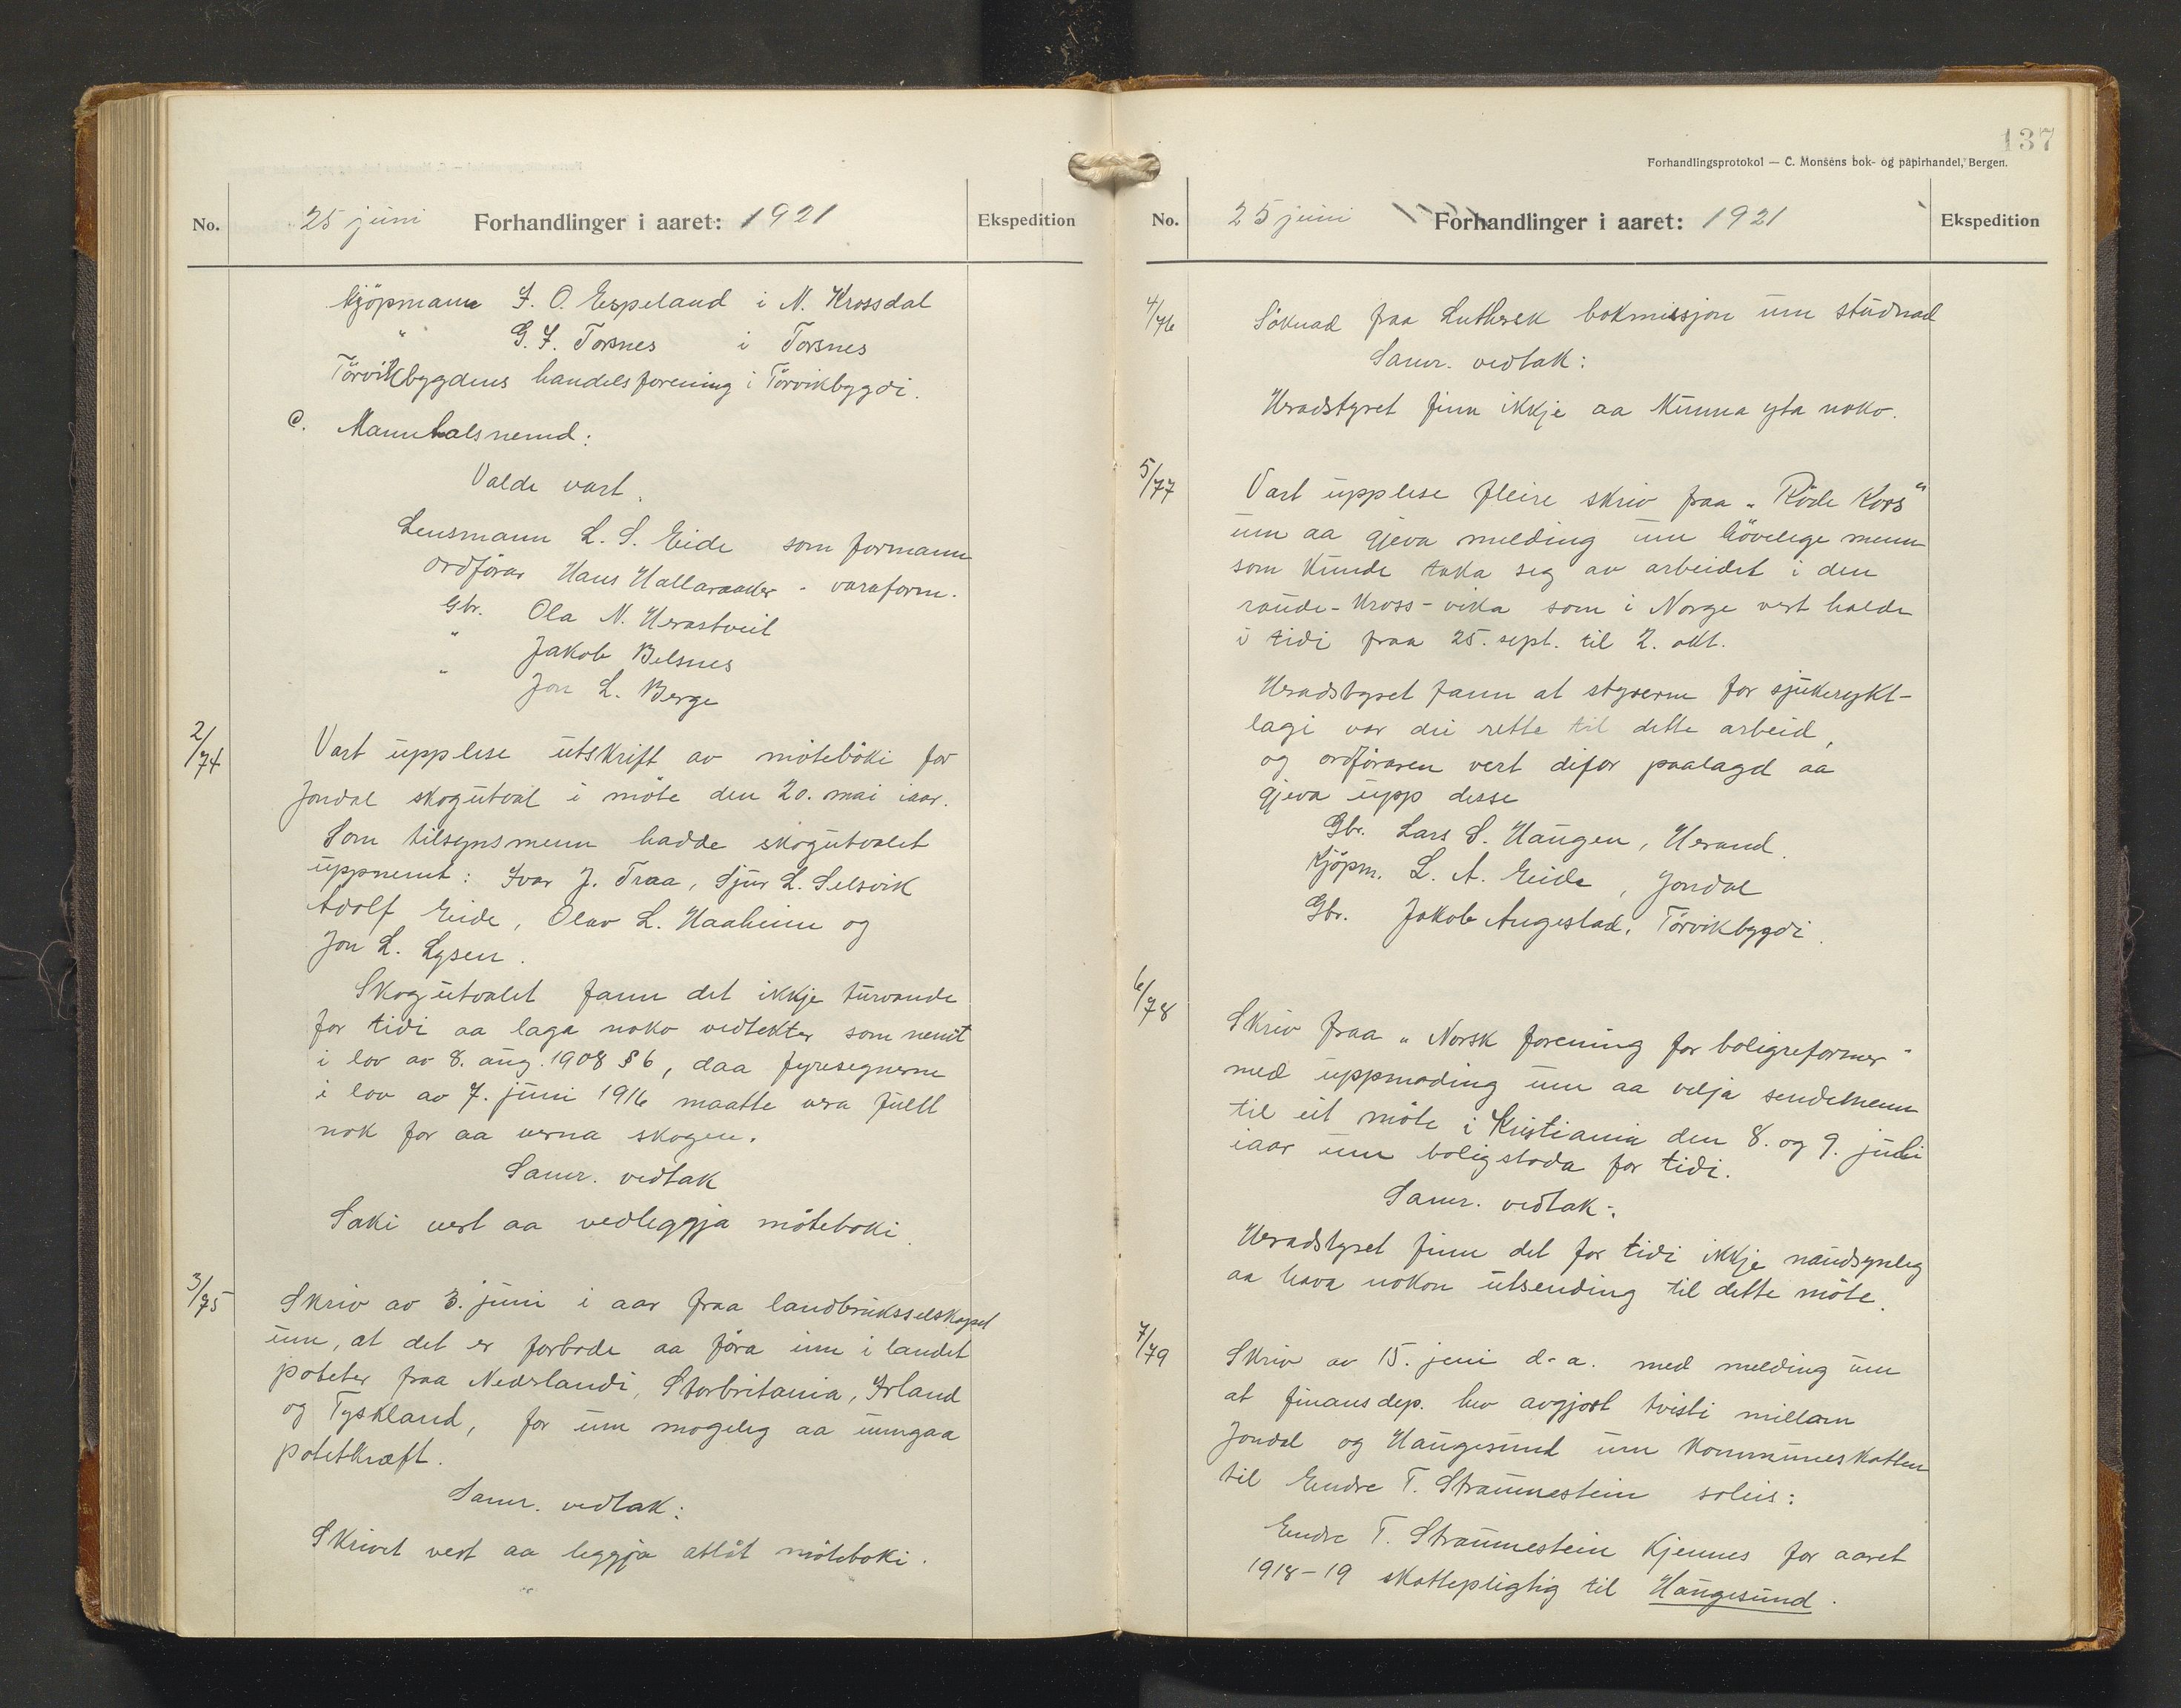 No.
25 juni Forhandlinger i aaret: 1921
Ekspedition
Kjöpmann J. O. Espeland i N. Krossdal
" G. J. Torsnes i Torsnes
Törvikbygdens handelsforening i Törvikbygdi.
C. Manntalsnemd:
Valde vart.
Lensmann L. S. Eide som formann
Ordförar Hans Hallaraaker - varaform.
Gbr. Ola N. Herastveit
" Jakob Belsnes
" Jon L. Berge
2/74 Vart upplese utskrift av möteböki for
Jondal skogutval i möte den 20. mai iaar.
Som tilsynsmenn hadde skogutvalet
uppnemt: Ivar J. Traa, Sjur L. Selsvik
Adolf Eide, Olav L. Haaheim og
Jon L. Lysen.
Skogutvalet fann det ikkje turvande
for tidi aa laga noko vedtekter som nemt
i lov av 8. aug. 1908 § 6, daa fyresegnerne
i lov av 7. juni 1916 maatte vera fullt
nok for aa verna skogen.
Samr. vedtak
Saki vert aa vedleggja möteboki.
3/75 Skriv av 3. juni i aar fraa landbruksselskapet
um, at det er forbode aa föra inn i landet
poteter fraa Nederlandi, Storbritania, Irland
og Tyskland, for um mogeleg aa umgaa
potetkræft.
Samr. vedtak:
Skrivet vert aa leggja attåt möteboki.
137
Forhandlingsprotokol — C. Monsens bok- og papirhandel, Bergen.
No.
25 juni Forhandlinger i aaret: 1921
Ekspedition
4/76 Söknad fraa Luthersk bokmisjon um studnad
Samr. vedtak:
Heradstyret finn ikkje aa kunna yta noko.
5/77 Vart upplese fleire skriv fraa "Röde Kors"
um aa gjeva melding um hövelege menn
som kunde taka seg av arbeidet i den
raude-kross-vika som i Norge vert halde
i tidi fraa 25. sept. til 2. okt.
Heradstyret fann at styrerne for sjukerykt-
lagi var dei rette til dette arbeid,
og ordföraren vert difor paalagd aa
gjeva upp desse
Gbr. Lars S. Haugen, Herand.
Kjöpm. L. A. Eide, Jondal
Gbr. Jakob Augestad, Törvikbygdi.
6/78 Skriv fraa "Norsk forening for boligreformer"
med uppmoding um aa velja sendemenn
til eit möte i Kristiania den 8. og 9. juli
iaar um boligstoda for tidi.
Samr. vedtak:
Heradstyret finn det for tidi ikkje naudsynleg
aa hava nokon utsending til dette möte.
7/79 Skriv av 15. juni d.a. med melding um
at finansdep. hev avgjort tvisti millam
Jondal og Haugesund um kommuneskatten
til Endre T. Straumestein soleis:
Endre T. Straumestein kjennes for aaret
1918-19 skattepligtig til Haugesund.